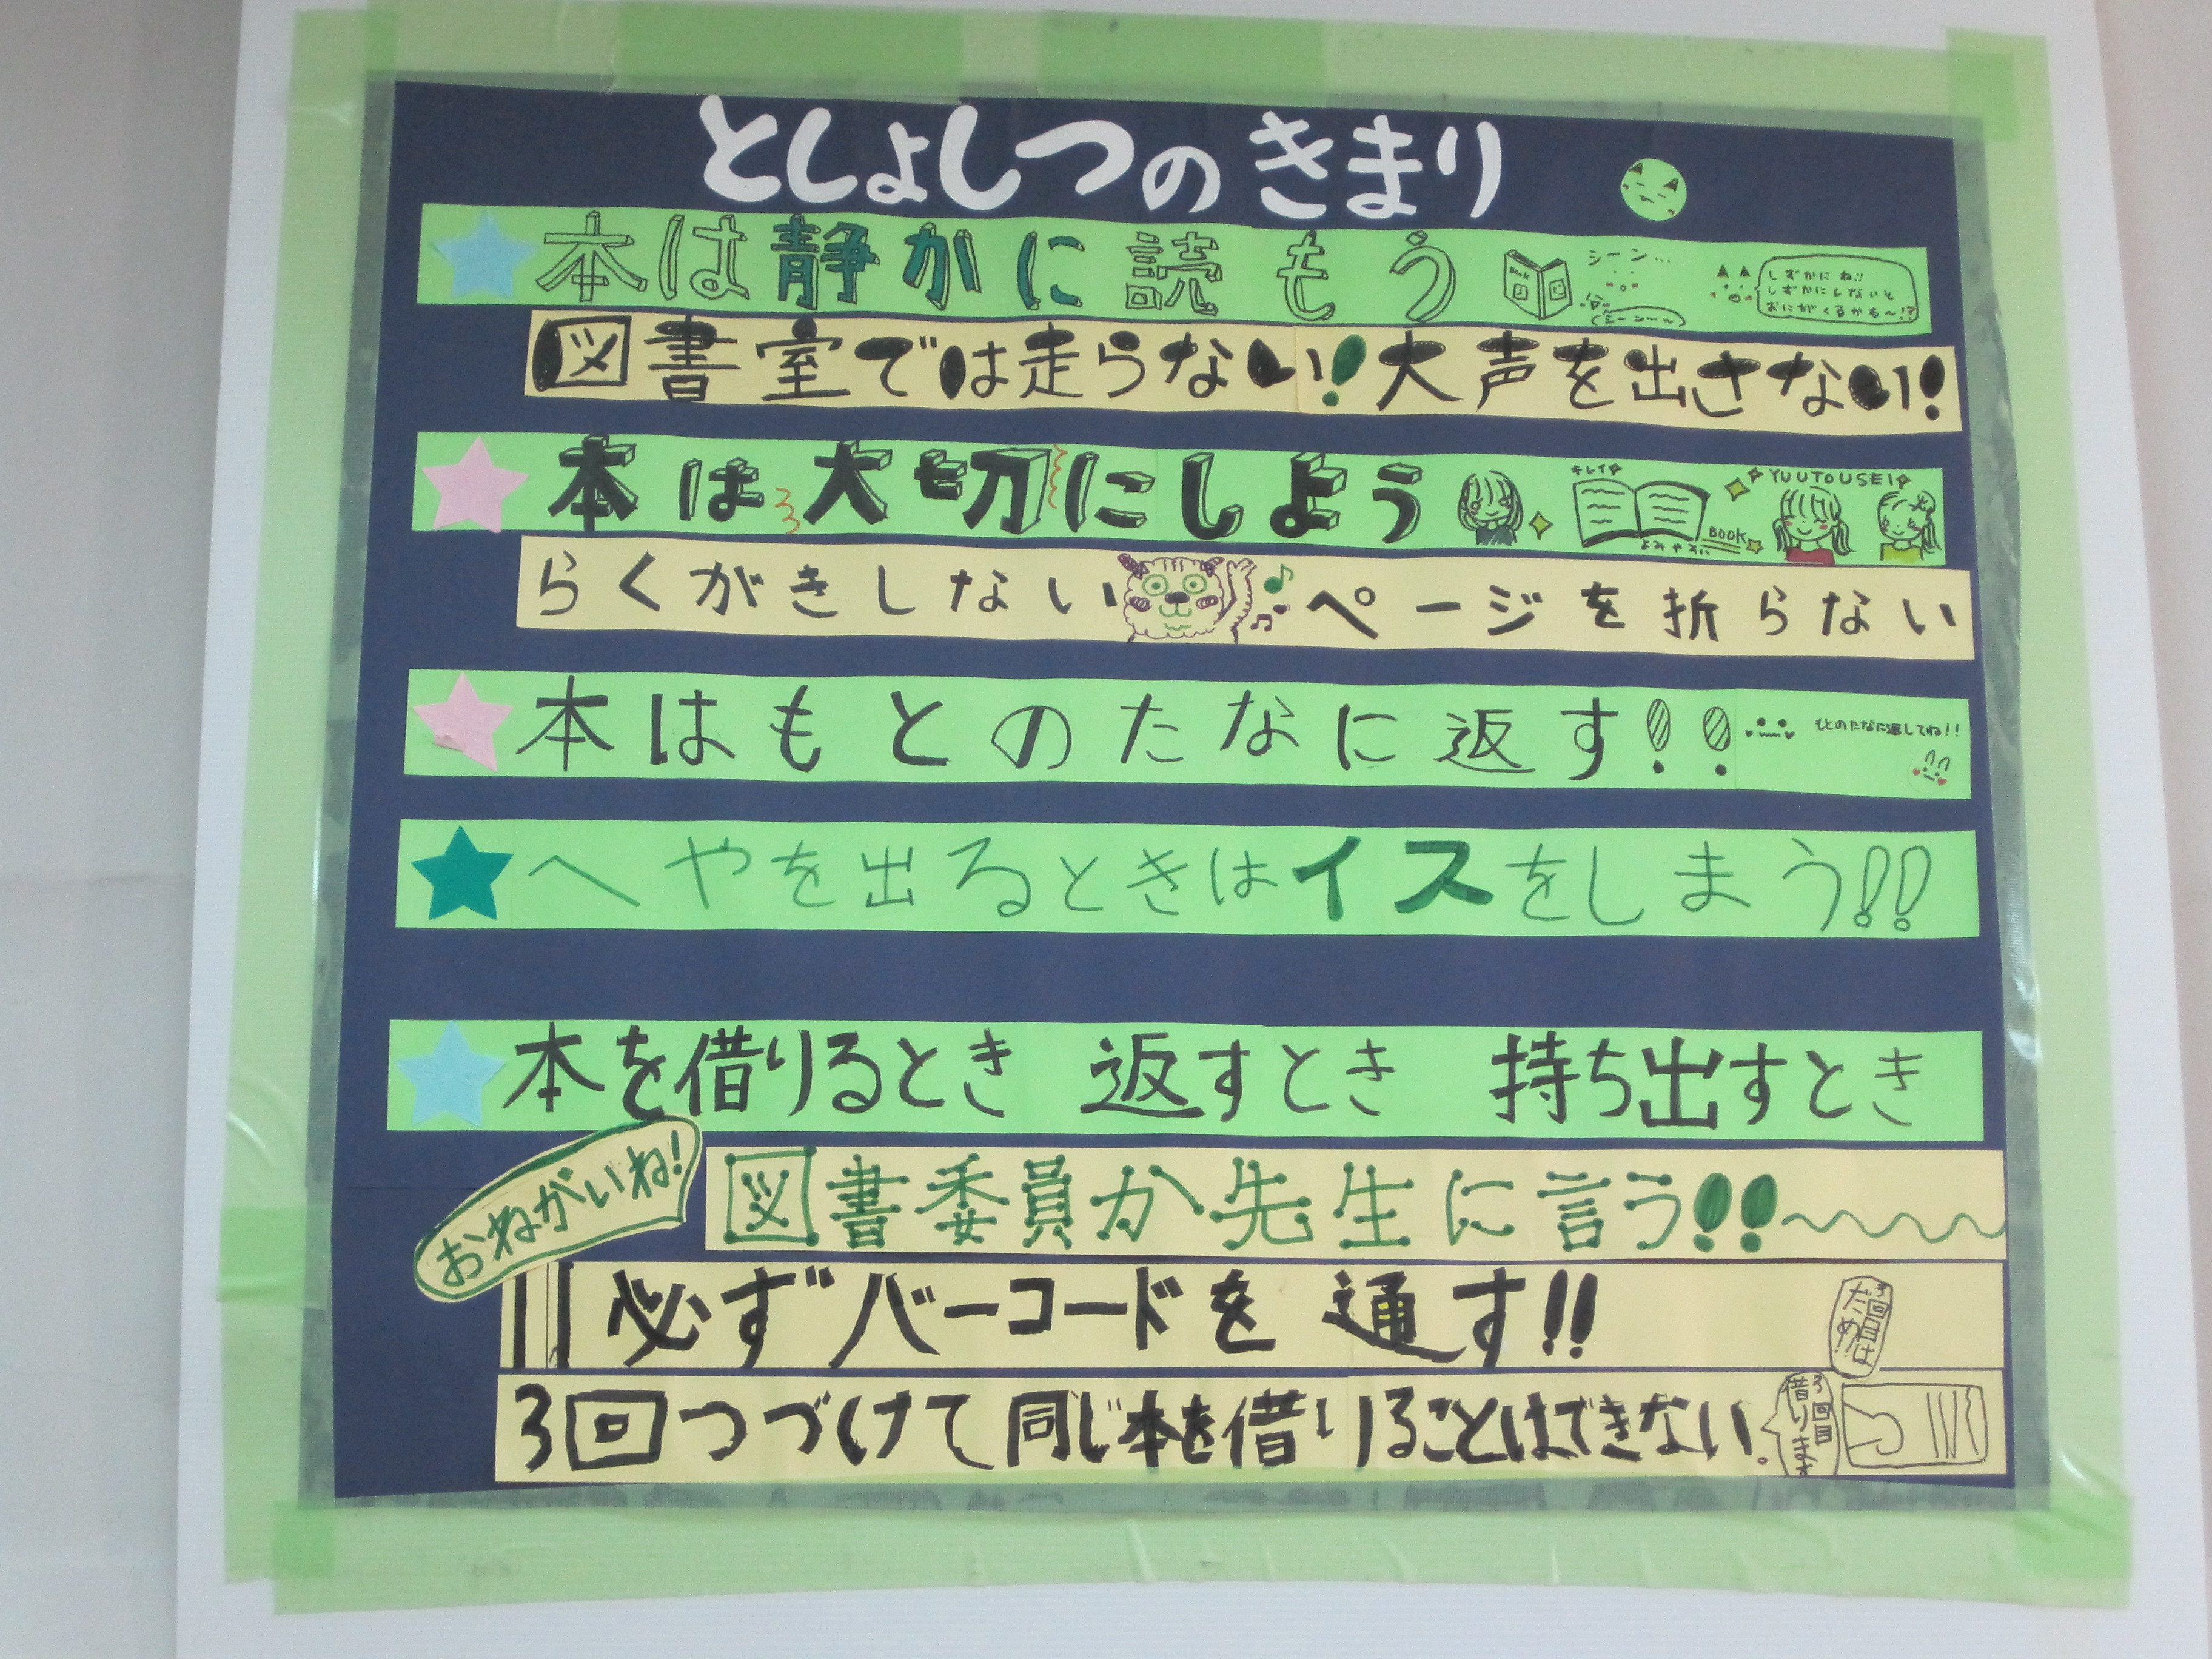 としょしつのきまり
本は静かに読もう
シーン…
シーン…〜
しずかにね!!
しずかにしないと
おにがくるかも〜!?
図書室では走らない!大声を出さない!
本は大切にしよう
キレイ
BOOK
YUUTOUSEI
らくがきしない ページを折らない
本はもとのたなに返す!!
もとのたなに返してね!!
へやを出るときはイスをしまう!!
本を借りるとき 返すとき 持ち出すとき
おねがいね!
図書委員か先生に言う!!
必ずバーコードを通す!!
3回目は
だめ!!
3回つづけて同じ本を借りることはできない。
3回目
借ります